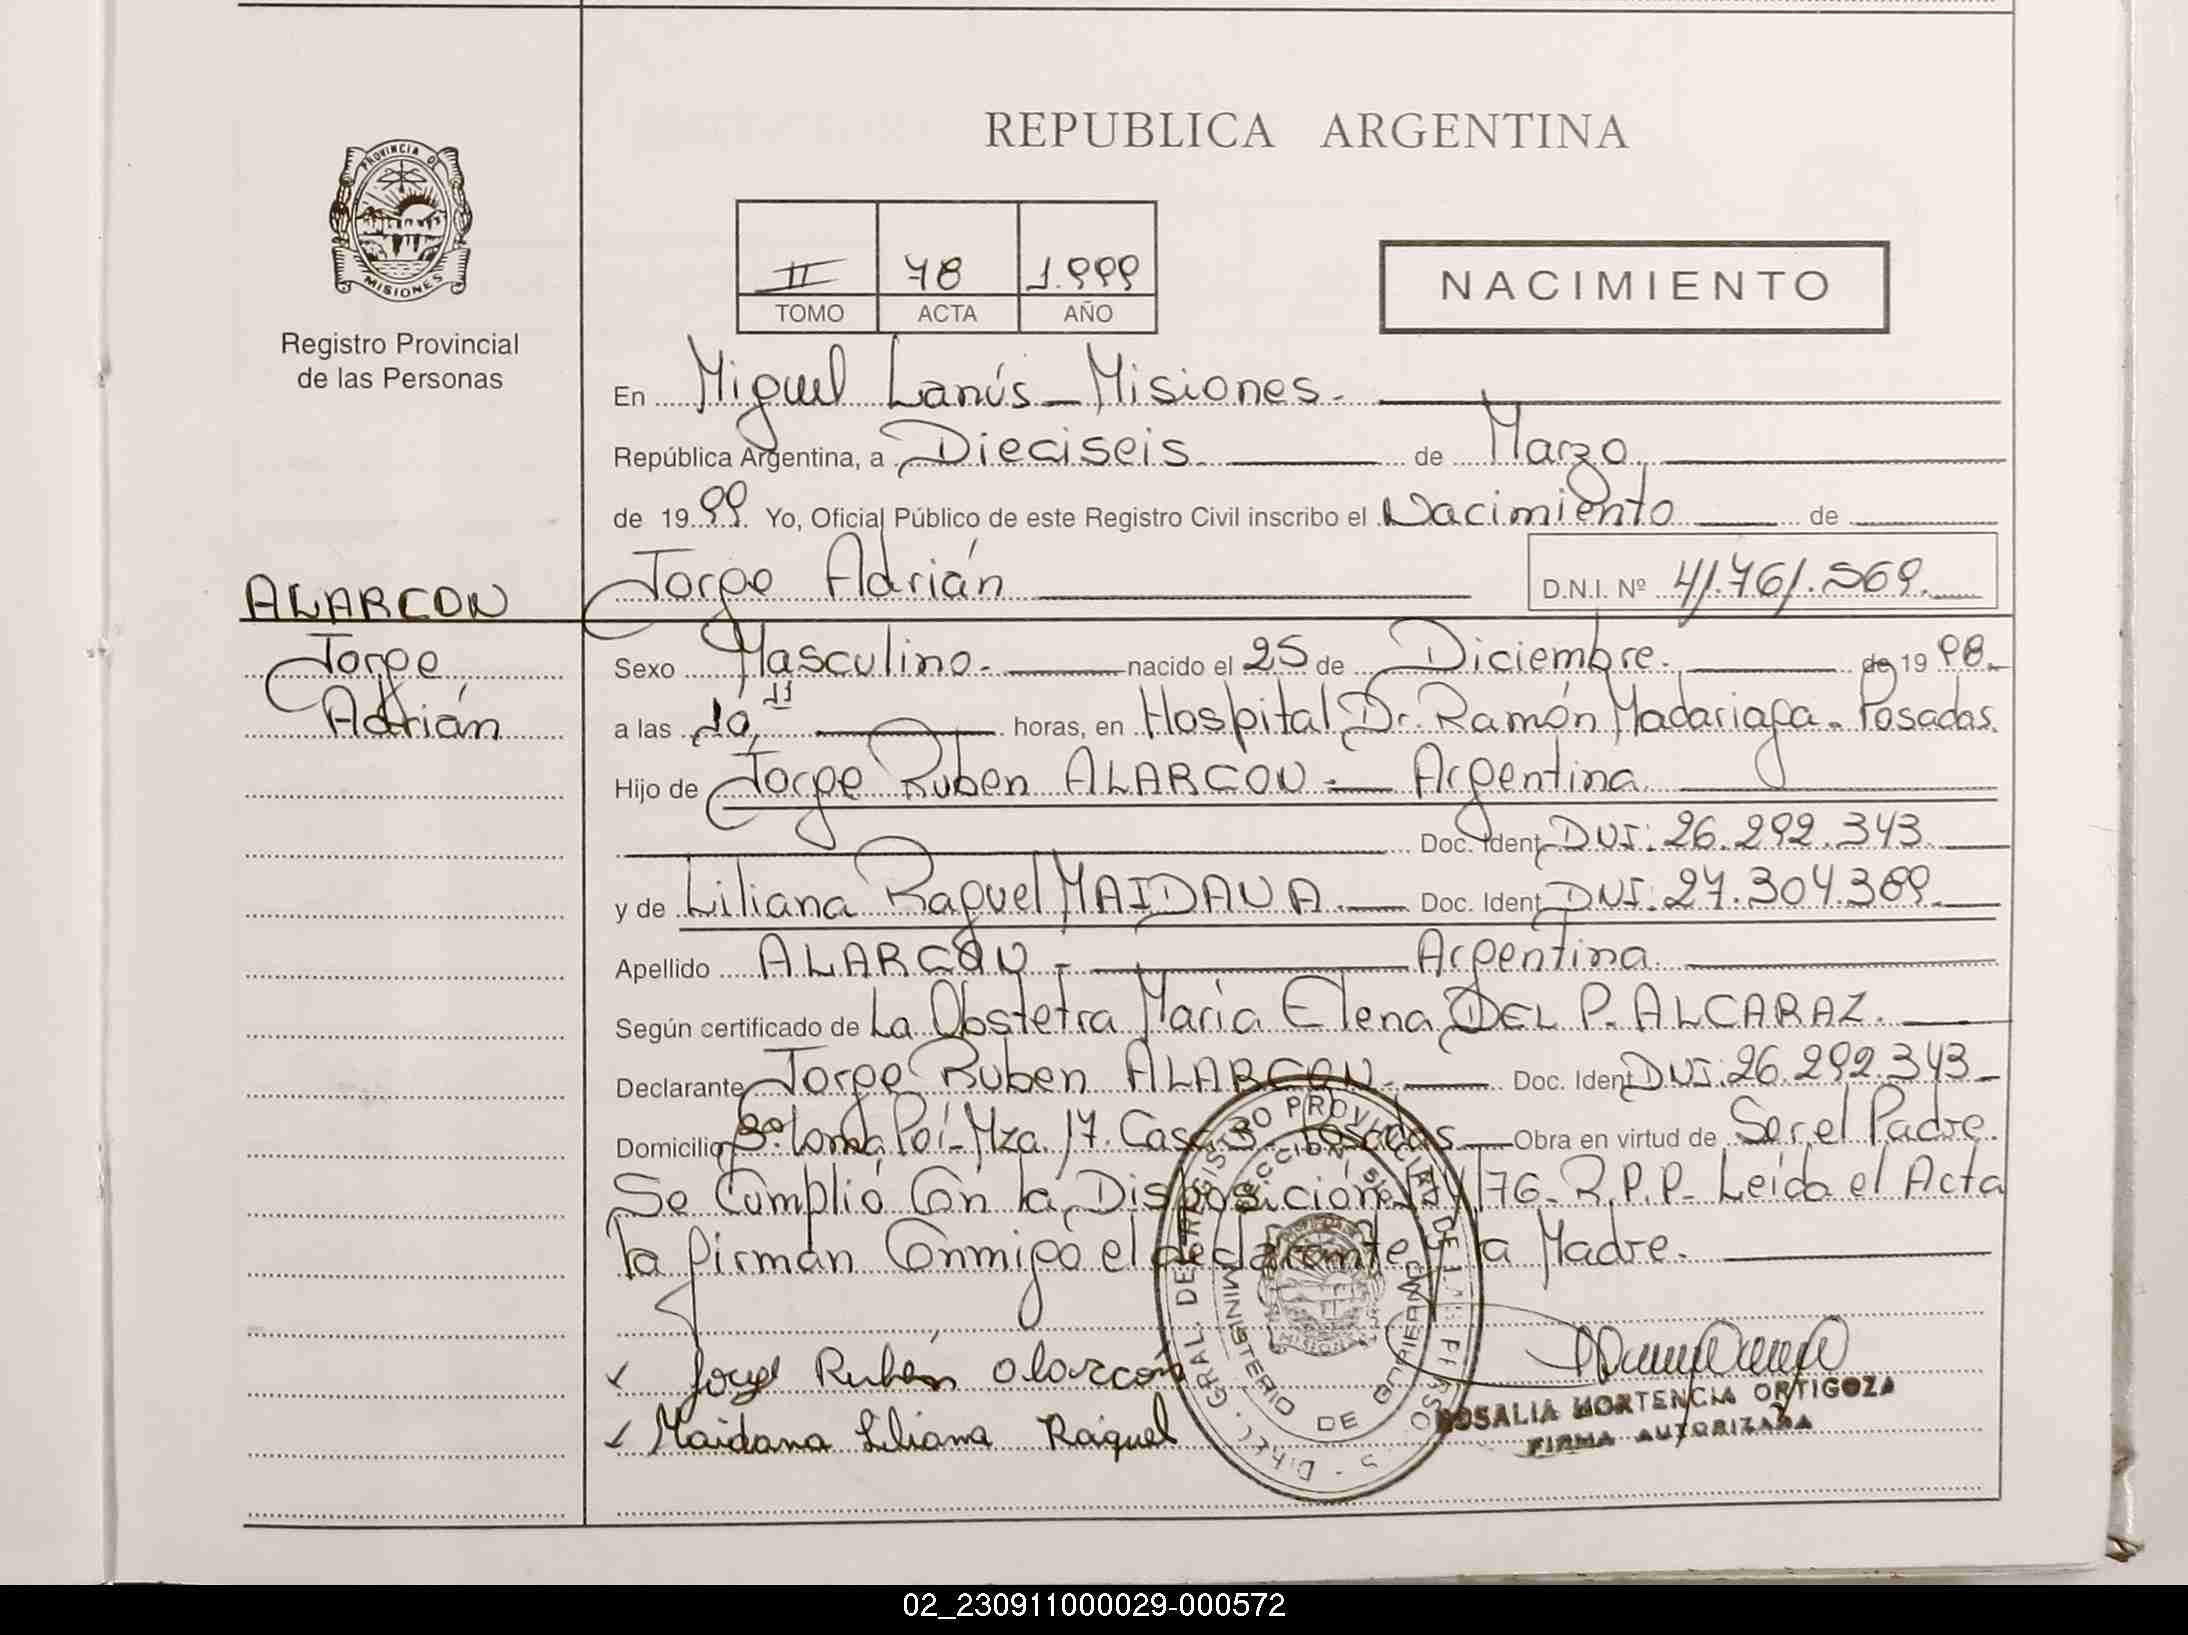 REPUBLICA ARGENTINA
PROVINCIA DE
MISIONES
Registro Provincial
de las Personas
II 78 1.999
TOMO ACTA AÑO
NACIMIENTO
En Miguel Lanús - Misiones.
República Argentina, a Dieciseis de Marzo
de 1999 Yo, Oficial Público de este Registro Civil inscribo el Nacimiento de
Jorge Adrián D.N.I. Nº 41.761.569.
ALARCON
Jorge
Adrián
Sexo Masculino. nacido el 25 de Diciembre. de 1998.
a las 10,11 horas, en Hospital Dr. Ramón Madariaga - Posadas.
Hijo de Jorge Ruben ALARCON - Argentina
Doc. Ident. DNI: 26.292.343
y de Liliana Raquel MAIDANA. Doc. Ident. DNI: 27.304.389.
Apellido ALARCON - Argentina.
Según certificado de La Obstetra María Elena DEL P. ALCARAZ.
Declarante Jorge Ruben ALARCON. Doc. Ident. DNI: 26.292.343
Domicilio Loma Poí - Mza. 17. Casa 3 - Posadas Obra en virtud de Ser el Padre.
Se Cumplió Con la Disposición 14/76 - R.P.P. Leída el Acta
la firman Conmigo el declarante y la Madre.
Jorge Rubén Alarcón
Maidana Liliana Raquel
DIREC. GRAL. DEL REGISTRO PROVINCIAL DE LAS PERSONAS
MINISTERIO DE GOBIERNO
ROSALIA HORTENCIA ORTIGOZA
FIRMA AUTORIZADA
02_230911000029-000572